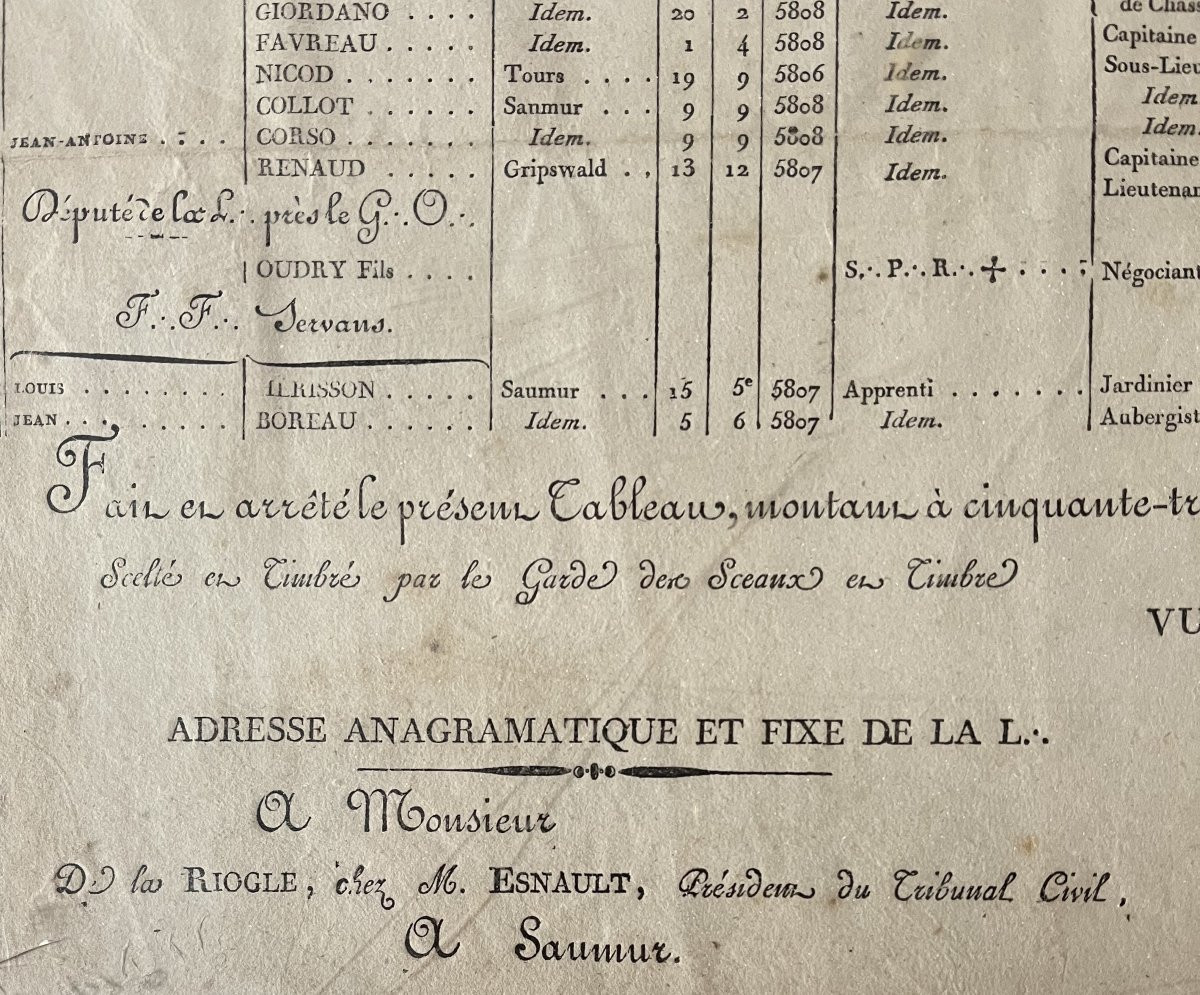 GIORDANO . . . . Idem. 20 2 5808 Idem. de Chass
FAVREAU . . . . . Idem. 1 4 5808 Idem. Capitaine
NICOD . . . . . . . Tours . . . . 19 9 5806 Idem. Sous-Lieu
COLLOT . . . . . . Saumur . . . 9 9 5808 Idem. Idem
JEAN-ANTOINE . . . . CORSO . . . . . . . Idem. 9 9 5808 Idem. Idem.
RENAUD . . . . . Gripswald . . 13 12 5807 Idem. Capitaine
Lieutenan
Député de la L∴ près le G∴ O∴
OUDRY Fils . . . . S∴ P∴ R∴ ✢ . . . . Négociant
F∴ F∴ Servans.
LOUIS . . . . . . . . LERISSON . . . . . Saumur . . . 15 5e 5807 Apprenti . . . . . . . Jardinier
JEAN . . . . . . . . . BOREAU . . . . . . Idem. 5 6 5807 Idem. Aubergist
Fait et arrêté le présent Tableau, montant à cinquante-tr
Scellé et Timbré par le Garde des Sceaux et Timbre
VU
ADRESSE ANAGRAMATIQUE ET FIXE DE LA L∴
A Monsieur
De la RIOGLE, chez M. ESNAULT, Président du Tribunal Civil,
A Saumur.